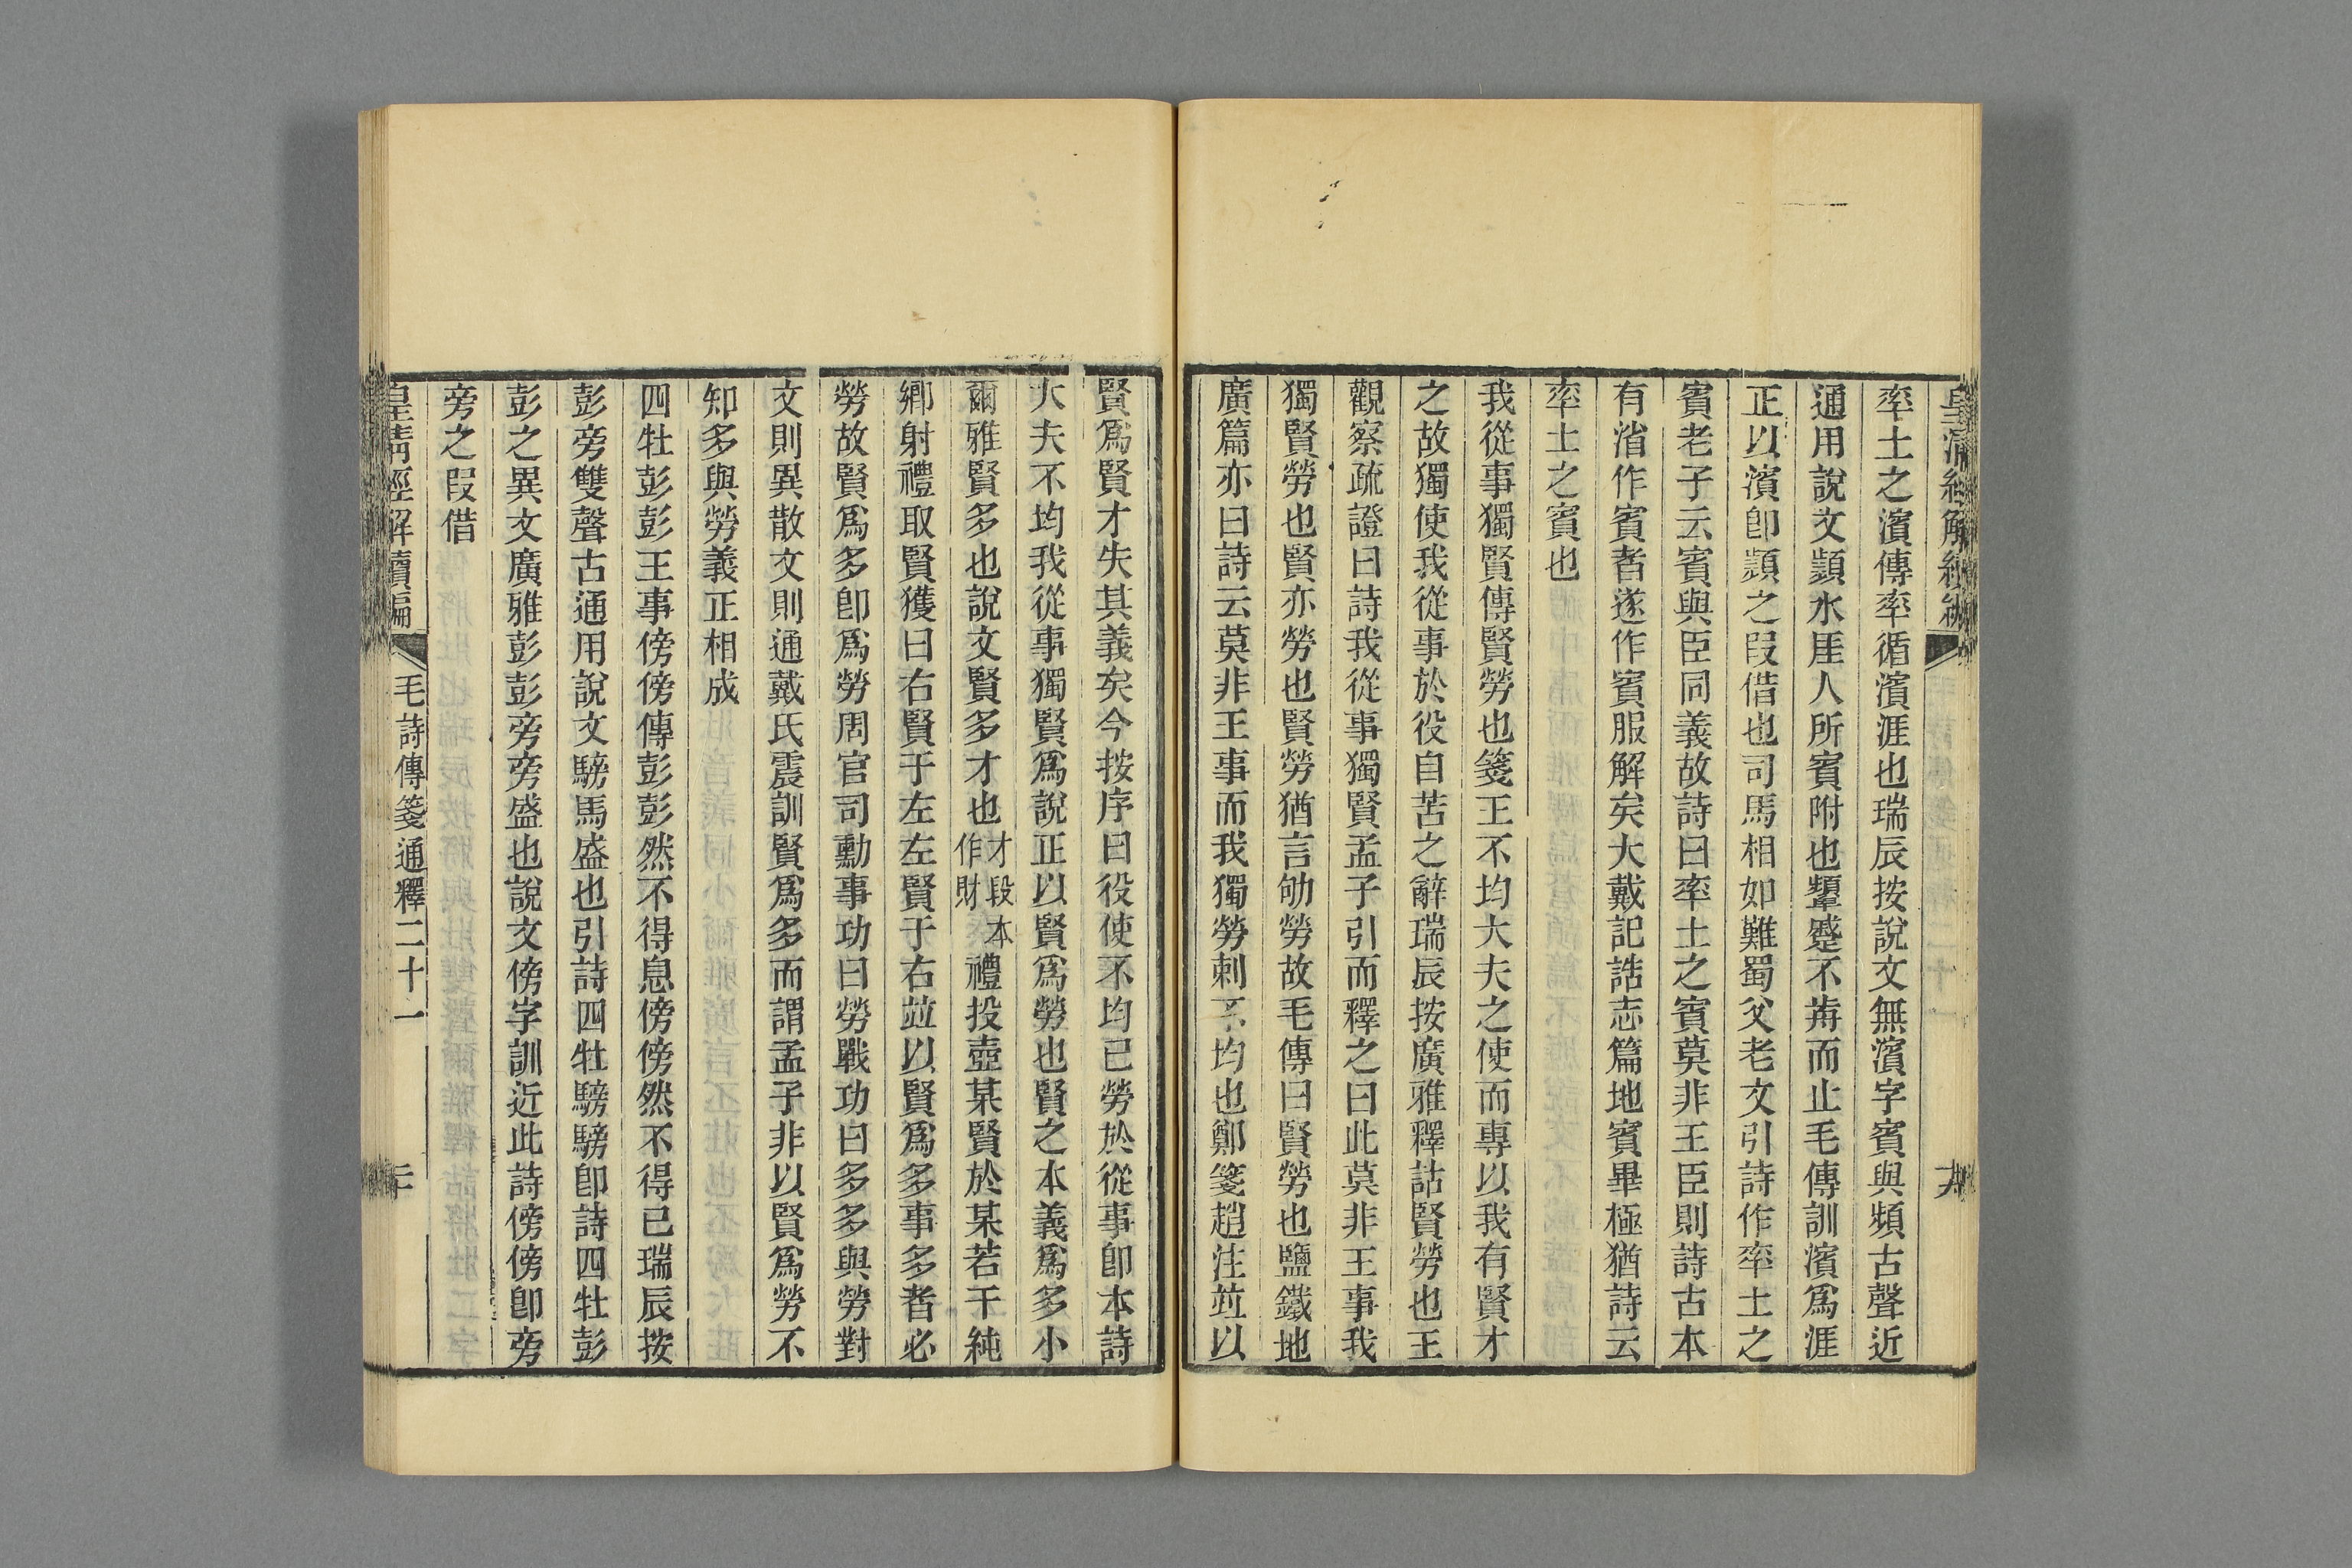 率土之濱傳率循濱涯也瑞辰按說文無濱字賓與頻古聲近
通用說文顥水厓人所賓附也顰蹙不歬而止毛傳訓濱爲涯
正以濱卽顥之叚借也司馬相如難蜀父老文引詩作率土之
賓老子云賓與臣同義故詩曰率土之賓莫非王臣則詩古本
有渻作賓者遂作賓服解矣大戴記誥志篇地賓畢極猶詩云
率土之賓也
我從事獨賢傳賢勞也箋王不均大夫之使而專以我有賢才
之故獨使我從事於役自苦之辭瑞辰按廣雅釋詁賢勞也王
觀察疏證曰詩我從事獨賢孟子引而釋之曰此莫非王事我
獨賢勞也賢亦勞也賢勞猶言劬勞故毛傳曰賢勞也鹽鐵地
廣篇亦曰詩云莫非王事而我獨勞刺不均也鄭箋趙注竝以
賢爲賢才失其義矣今按序曰役使不均已勞於從事卽本詩
大夫不均我從事獨賢爲說正以賢爲勞也賢之本義爲多小
爾雅賢多也說文賢多才也才段本作財禮投壺某賢於某若干純
鄉射禮取賢獲曰右賢于左左賢于右竝以賢爲多事多者必
勞故賢爲多卽爲勞周官司勳事功曰勞戰功曰多多與勞對
文則異散文則通戴氏震訓賢爲多而謂孟子非以賢爲勞不
知多與勞義正相成
四牡彭彭王事傍傍傳彭彭然不得息傍傍然不得已瑞辰按
彭旁雙聲古通用說文騯馬盛也引詩四牡騯騯卽詩四牡彭
彭之異文廣雅彭彭旁旁盛也說文傍字訓近此詩傍傍卽旁
旁之叚借
皇清經解續編 毛詩傳箋通釋二十一